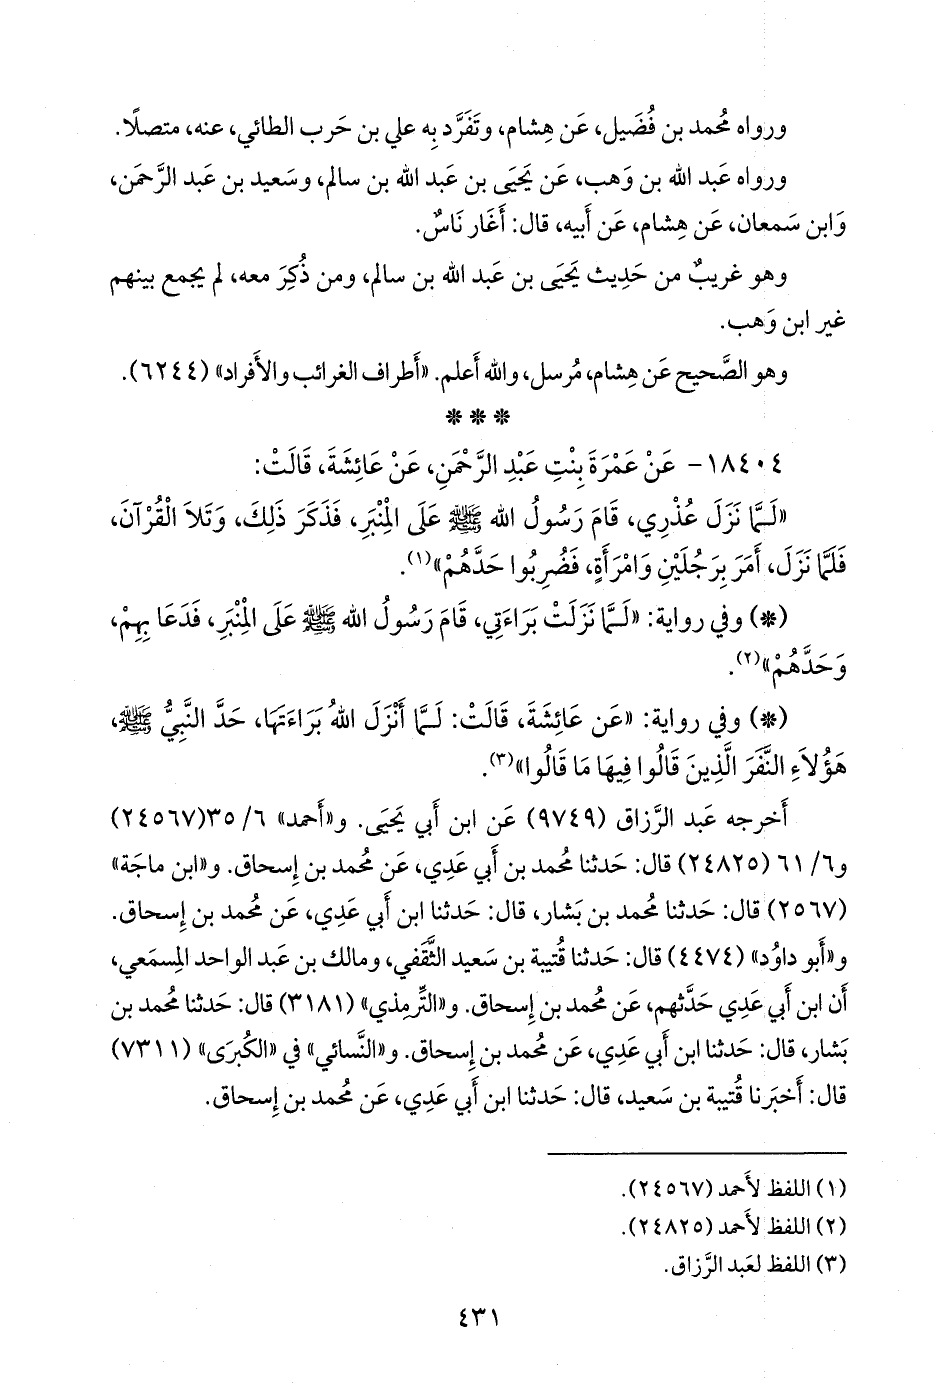 ورواه مُحمد بن فُضَيل، عَن هِشام، وتَفَرَّد به علي بن حَرب الطائي، عنه، متصلًا.
ورواه عَبد الله بن وَهب، عَن يَحيَى بن عَبد الله بن سالم، وسَعيد بن عَبد الرَّحمَن،
وَابن سَمعان، عَن هِشام، عَن أَبيه، قال: أَغَار نَاسٌ.
وهو غريبٌ من حَدِيث يَحيَى بن عَبد الله بن سالم، ومن ذُكِرَ معه، لم يجمع بينهم
غير ابن وَهب.
وهو الصَّحيح عَن هِشام، مُرسل، والله أَعلم. «أَطراف الغرائب والأَفراد» (٦٢٤٤).
* * *
١٨٤٠٤- عَنْ عَمْرَةَ بِنْتِ عَبْدِ الرَّحْمَنِ، عَنْ عَائِشَةَ، قَالَتْ:
«لَـمَّا نَزَلَ عُذْرِي، قَامَ رَسُولُ الله ﷺ عَلَى الْمِنْبَرِ، فَذَكَرَ ذَلِكَ، وَتَلاَ الْقُرْآنَ،
فَلَمَّا نَزَلَ، أَمَرَ بِرَجُلَيْنِ وَامْرَأَةٍ، فَضُرِبُوا حَدَّهُمْ»(١).
(*) وفي رواية: «لَـمَّا نَزَلَتْ بَرَاءَتِي، قَامَ رَسُولُ الله ﷺ عَلَى الْمِنْبَرِ، فَدَعَا بِهِمْ،
وَحَدَّهُمْ»(٢).
(*) وفي رواية: «عَن عَائِشَةَ، قَالَتْ: لَـمَّا أَنْزَلَ اللهُ بَرَاءَتَهَا، حَدَّ النَّبِيُّ ﷺ،
هَؤُلاَءِ النَّفَرَ الَّذِينَ قَالُوا فِيهَا مَا قَالُوا»(٣).
أَخرجه عَبد الرَّزاق (٩٧٤٩) عَن ابن أَبي يَحيَى. و«أَحمد» ٦/ ٣٥(٢٤٥٦٧)
و٦/ ٦١ (٢٤٨٢٥) قال: حَدثنا مُحمد بن أَبي عَدِي، عَن مُحمد بن إِسحاق. و«ابن ماجَة»
(٢٥٦٧) قال: حَدثنا مُحمد بن بَشار، قال: حَدثنا ابن أَبي عَدِي، عَن مُحمد بن إِسحاق.
و«أَبو داوُد» (٤٤٧٤) قال: حَدثنا قُتيبة بن سَعيد الثَّقَفي، ومالك بن عَبد الواحد المِسمَعي،
أَن ابن أَبي عَدِي حَدَّثهم، عَن مُحمد بن إِسحاق. و«التِّرمِذي» (٣١٨١) قال: حَدثنا مُحمد بن
بَشار، قال: حَدثنا ابن أَبي عَدِي، عَن مُحمد بن إِسحاق. و«النَّسائي» في «الكُبرَى» (٧٣١١)
قال: أَخبَرنا قُتيبة بن سَعيد، قال: حَدثنا ابن أَبي عَدِي، عَن مُحمد بن إِسحاق.
(١) اللفظ لأَحمد (٢٤٥٦٧).
(٢) اللفظ لأَحمد (٢٤٨٢٥).
(٣) اللفظ لعَبد الرَّزاق.
٤٣١